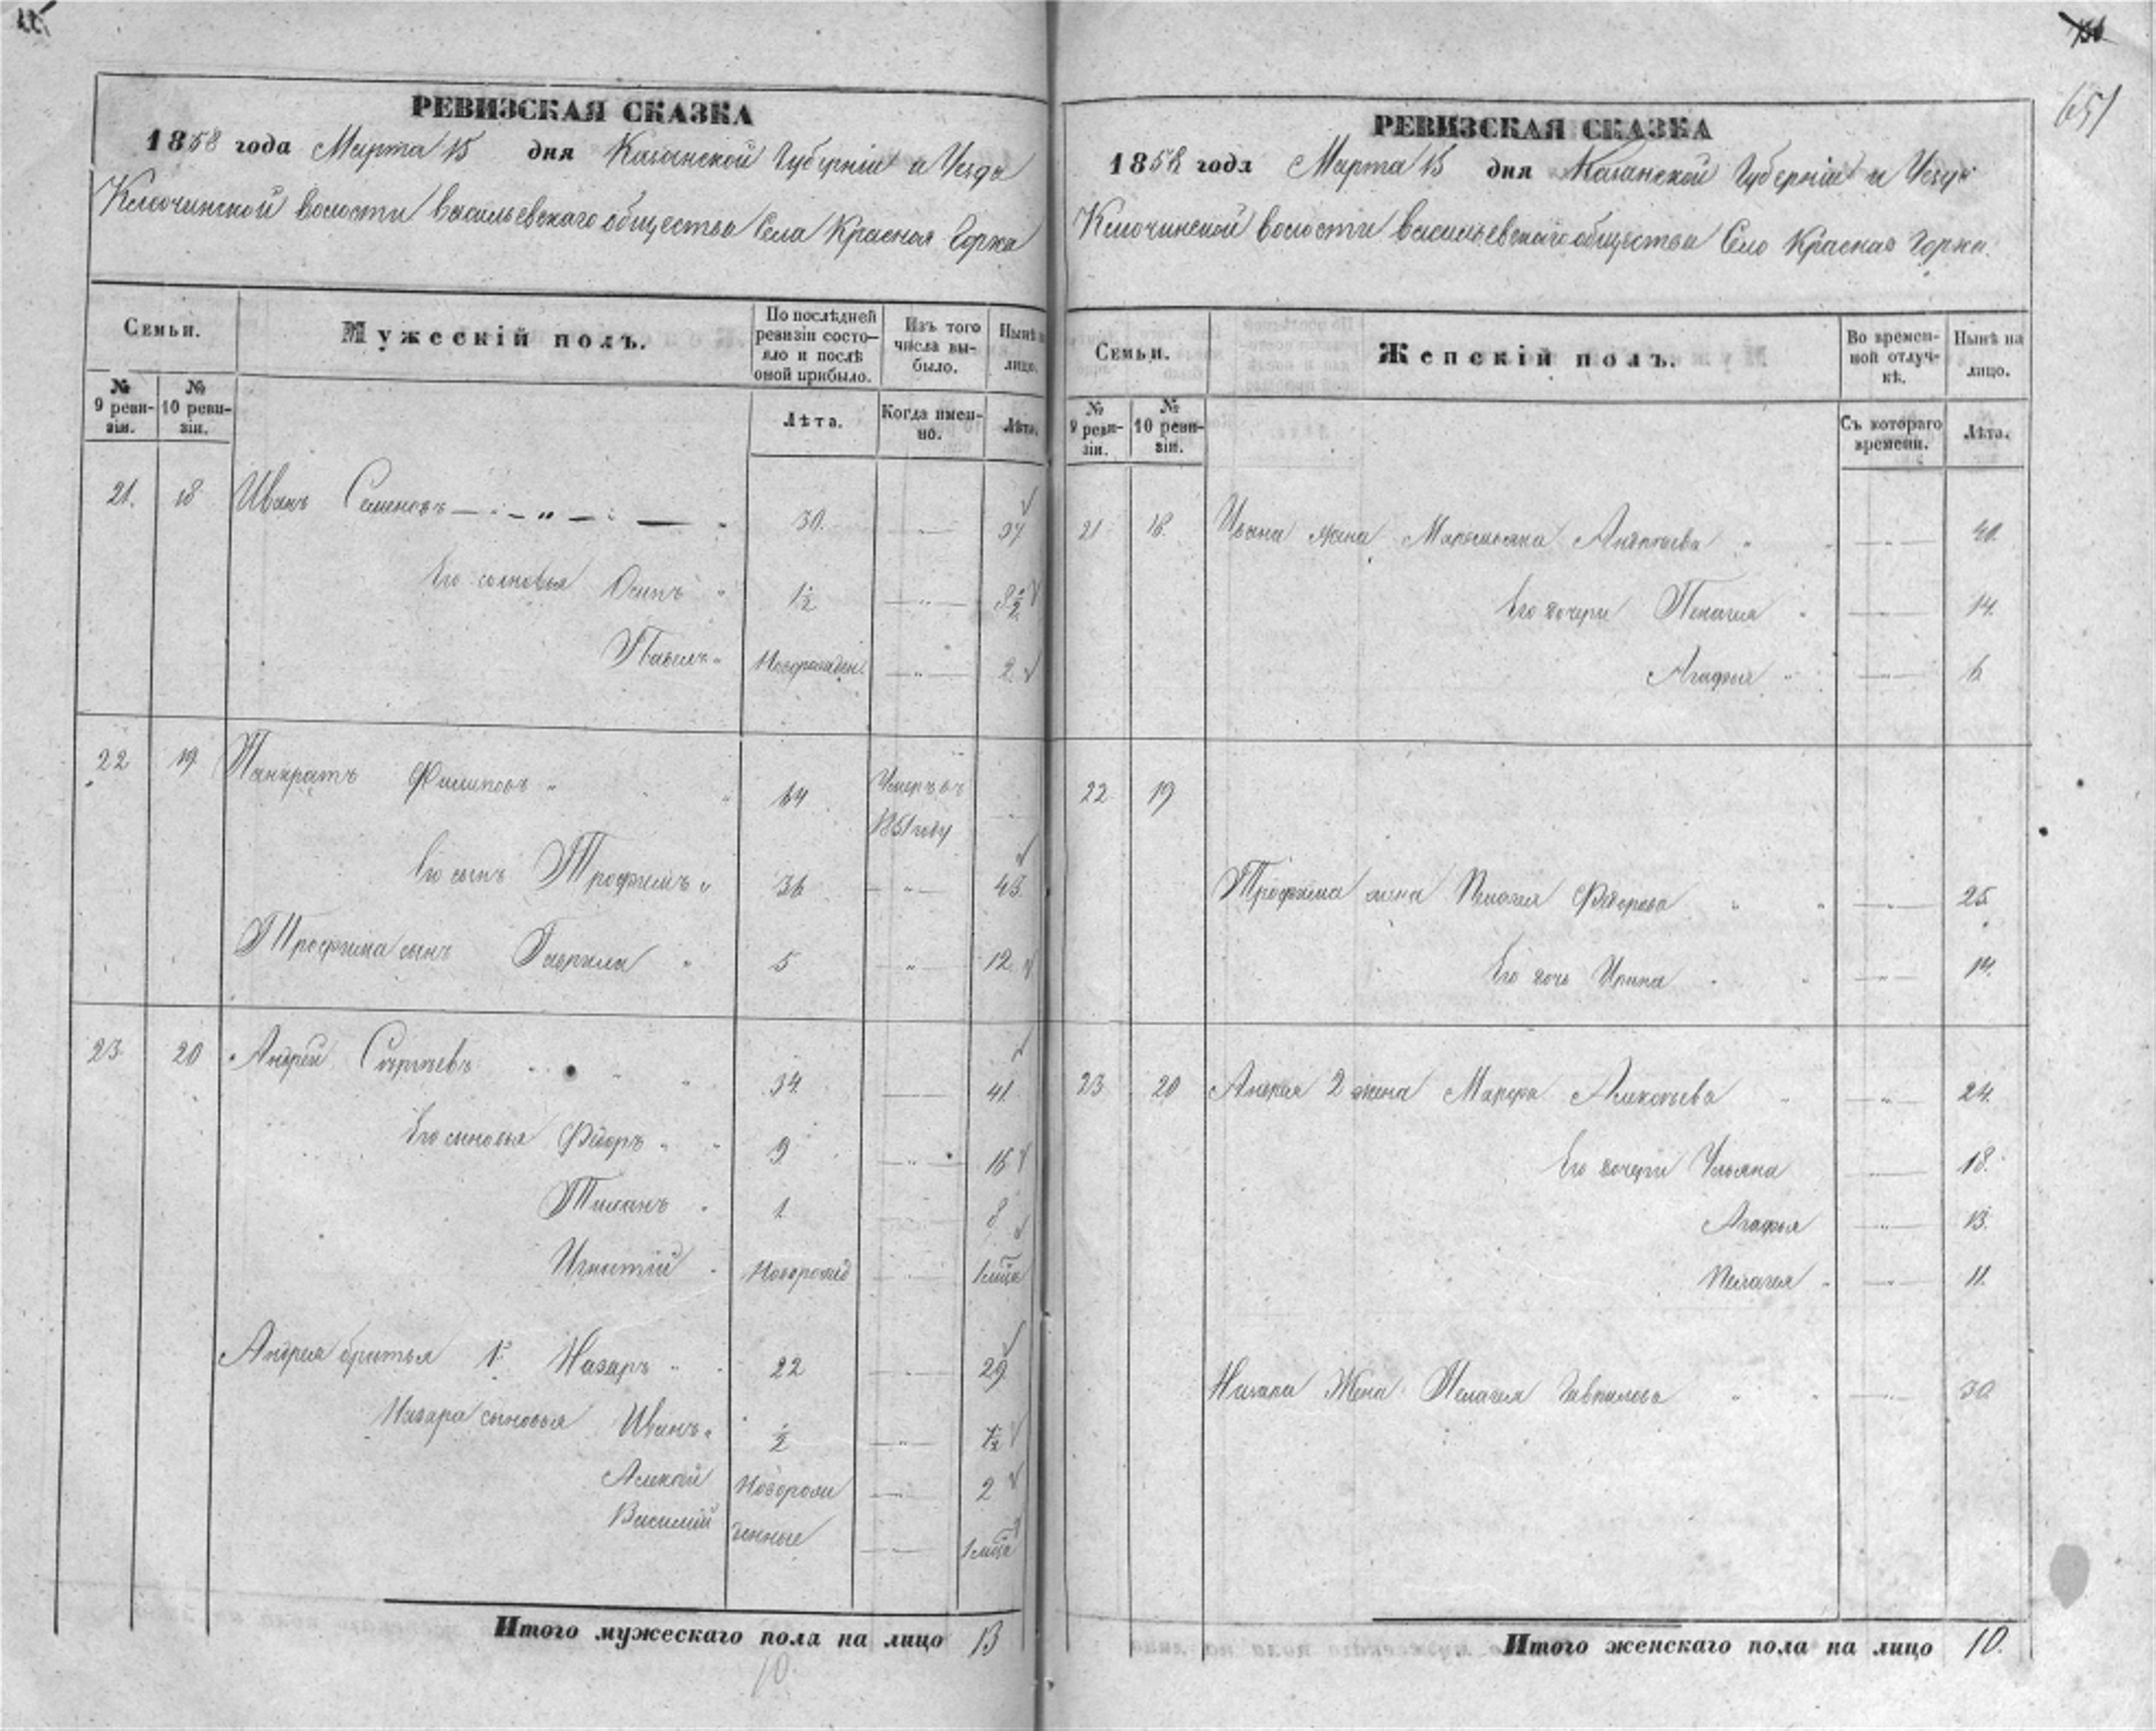 РЕВИЗСКАЯ СКАЗКА
1858 года Марта 15 дня Казанской Губерніи и Уезда
Ключинской волости Васильевскаго общества Села Красная Горка
Семьи.
Мужескій полъ.
По послѣдней ревизіи состояло и послѣ оной прибыло.
Изъ того числа выбыло.
Нынѣ на лицо.
№ 9 ревизіи.
№ 10 ревизіи.
Лѣта.
Когда именно.
Лѣта.
21. 18 Иванъ Семеновъ 30. 37
Его сыновья Осипъ 1½ 8½
Павелъ Новорожден. 2
22 19 Панкратъ Филиповъ 64 Умеръ въ 1851 году
Его сынъ Трофимъ 36 43
Трофима сынъ Гаврила 5 12
23 20 Андрей Сергѣевъ 34 41
Его сыновья Фёдоръ 9 16
1 8
Игнатій Новорожд 1 мца
Андрея братья 1й Назаръ 22 29
Назара сыновья Иванъ ½ 7½
Алексѣй Новорож 2
Василий денные 1 мца
Итого мужескаго пола на лицо 13
10
651
РЕВИЗСКАЯ СКАЗКА
1858 года Марта 15 дня Казанской Губерніи и Уезда
Ключинской волости Васильевскаго общества Село Красная Горка.
Семьи.
Женскій полъ.
Во временной отлучкѣ.
Нынѣ на лицо.
№ 9 ревизіи.
№ 10 ревизіи.
Съ котораго времени.
Лѣта.
21 18. Ивана жена 40.
Его дочери Пелагея 14.
Агафья 6
22 19
Трофима жена Пелагея Фёдорова 25.
Его дочь Ирина 14.
23 20 Андрея 2 жена Марфа 24.
Его дочери Ульяна 18.
Агафья 13.
Пелагея 11.
Назара Жена Пелагея Гаврилова 30
Итого женскаго пола на лицо 10.